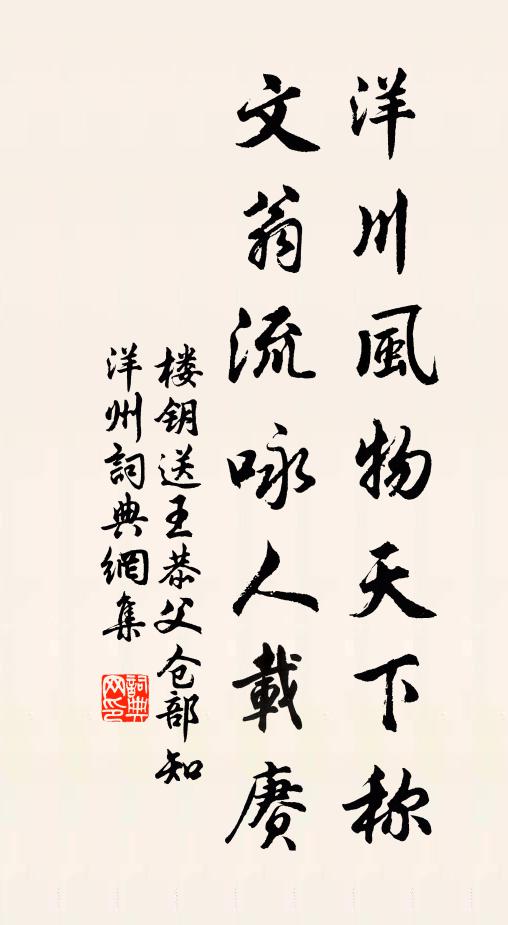 洋川風物天下称
文翁流咏人載赓
楼钥送王恭父仓部知
洋州詞典網集
詞典网印